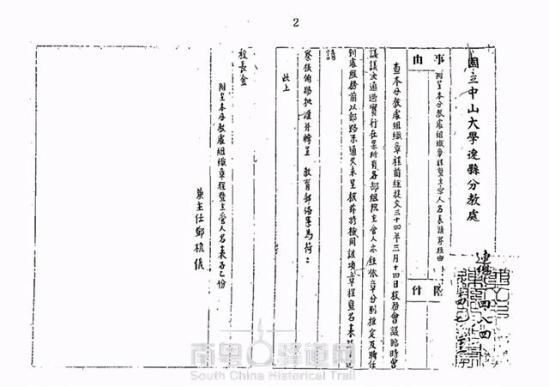 2
國立中山大學連縣分教處
事由
附呈本分教處組織章程暨主管人名表請
附件
連
四 八 四
查本分教處組織章程前經提交三十四年三月十四日校務會議臨時會
議議決通過實行在案所有各部組主管人亦經依章分別推定及聘任
到處組務前以郵路不通久未呈報
請
察核備案 並轉呈 教育部備案為荷
此上
校長金
附呈本分教處組織章程暨主管人名表各乙份
兼主任鄧植儀
South China Historical Trail